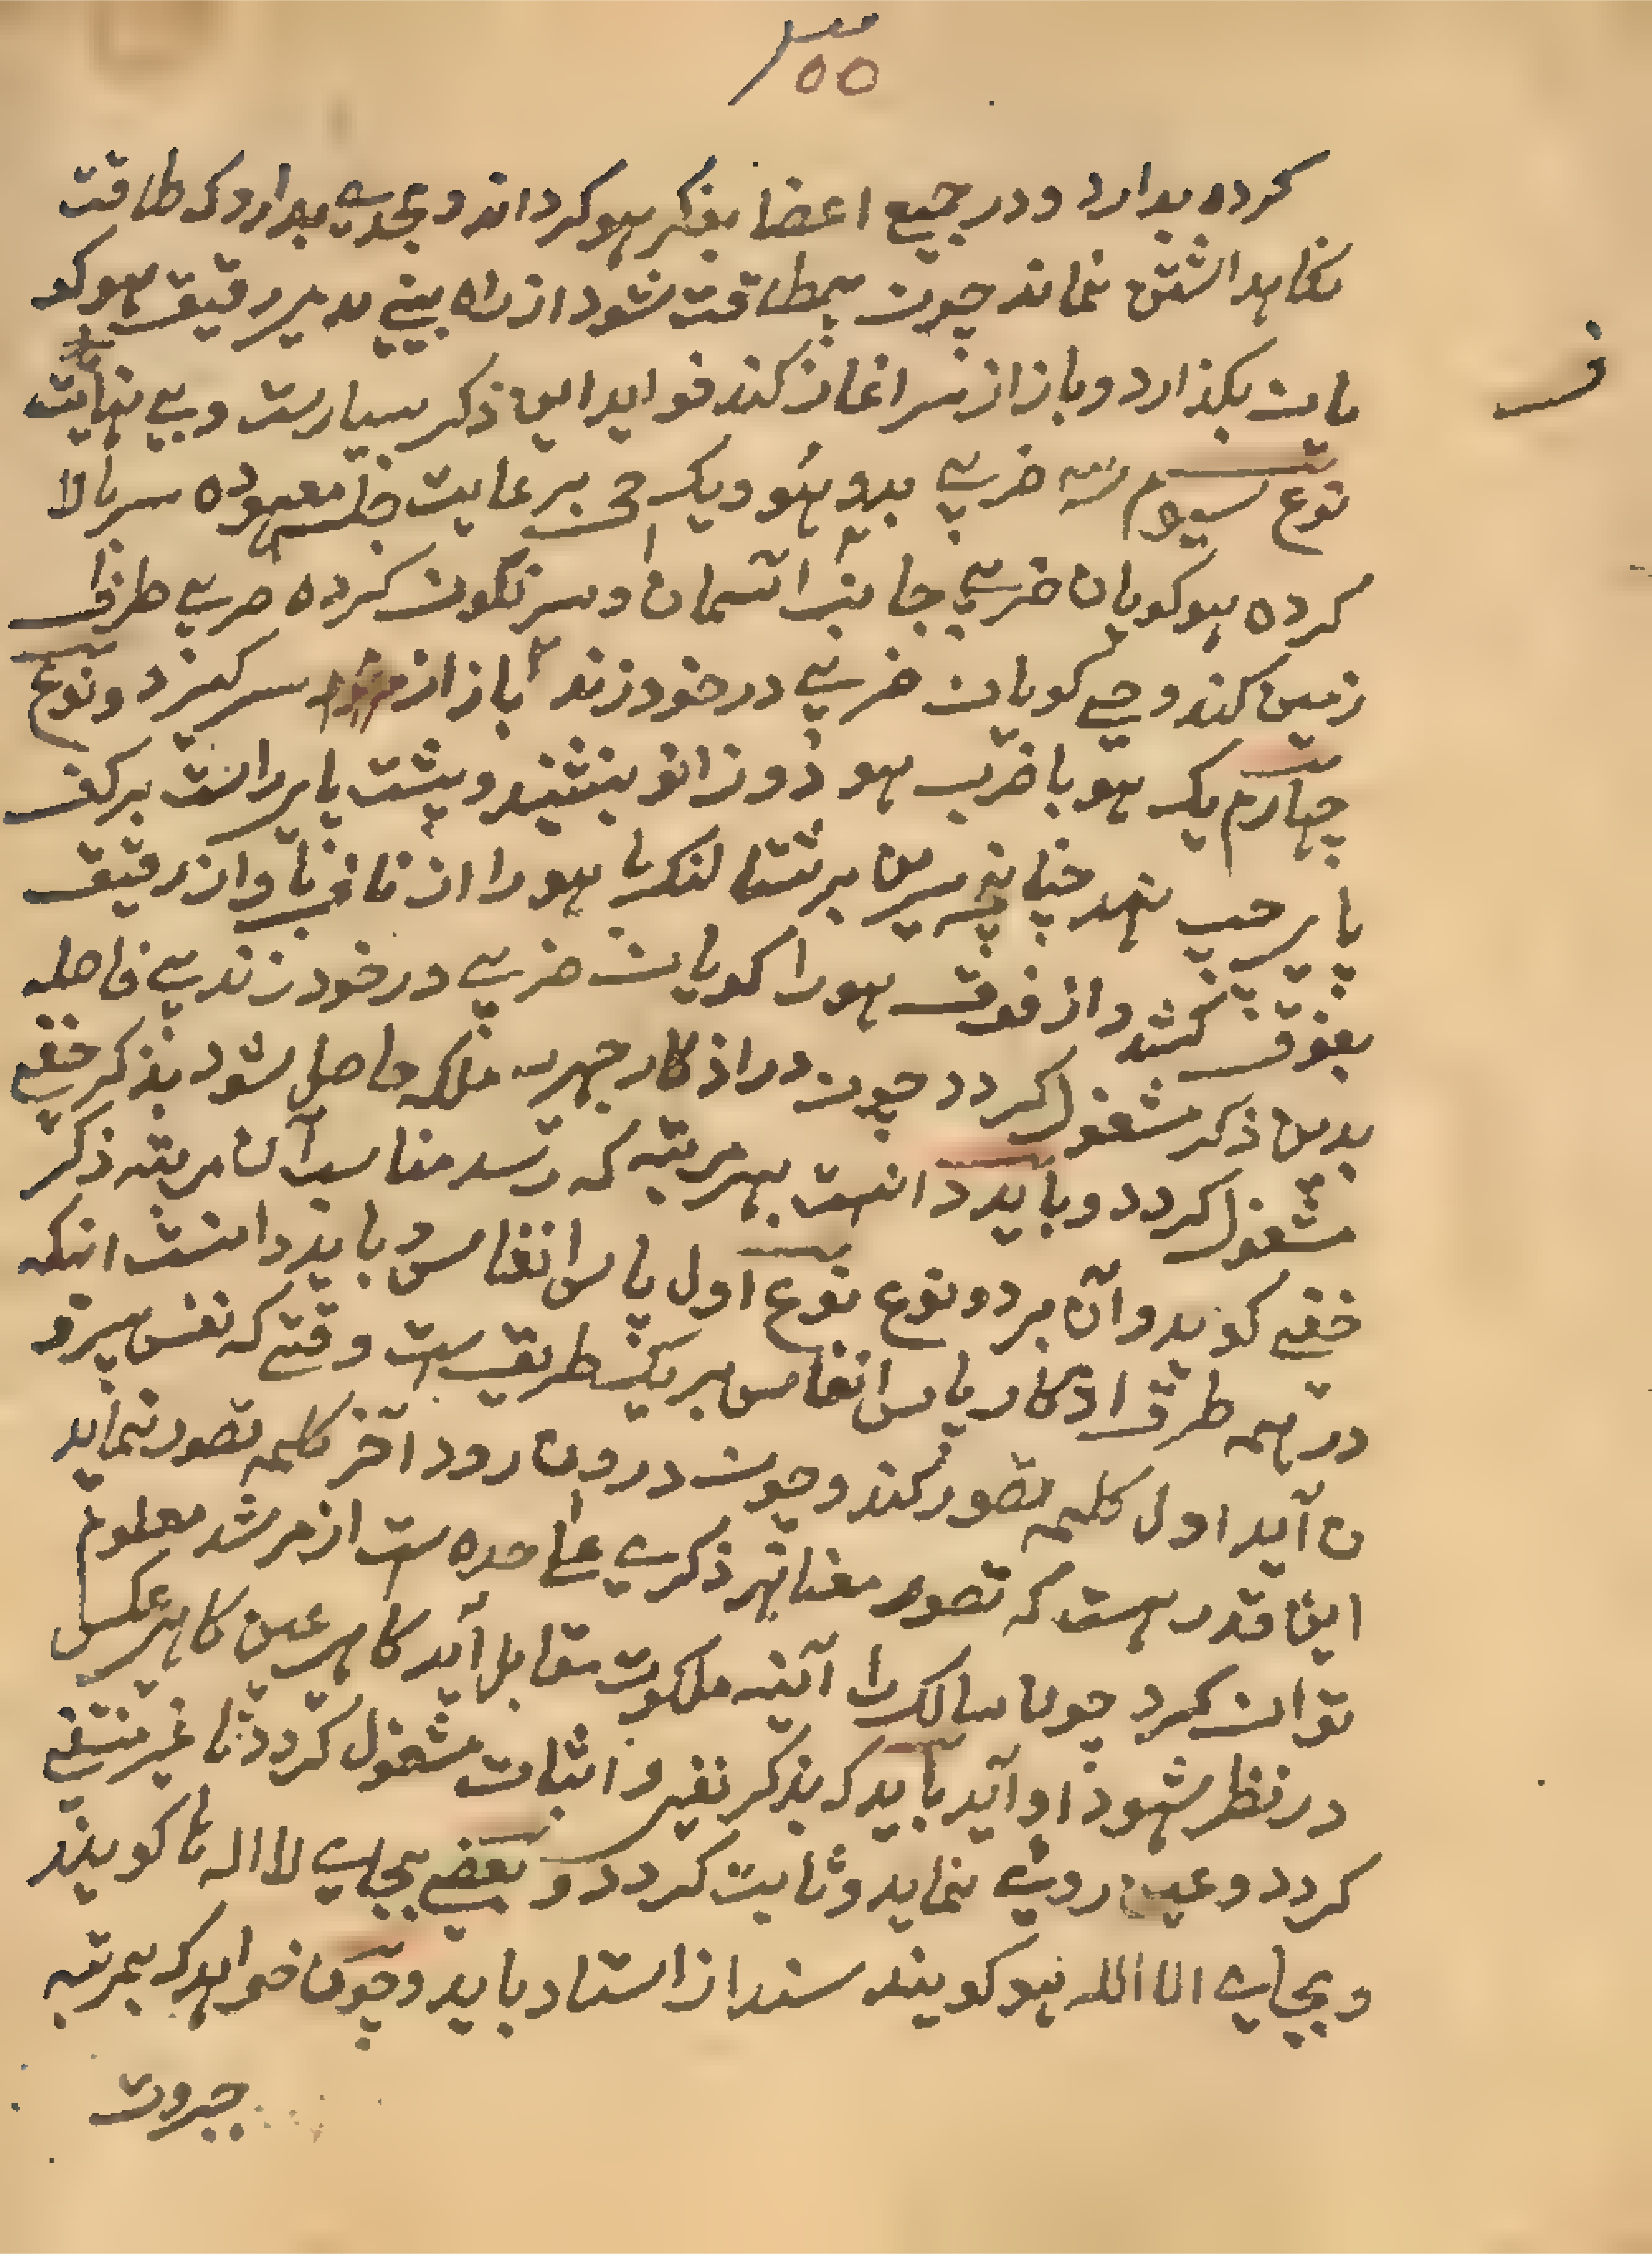 ۵۵
کرده بدارد و در جمیع اعضا بفکر هو کرداند و بحدی بدارد که طاقت
نکاهداشتن نماند چون بیطاقت شود از راه بینی بدیر رقیق هو کو
یان بکذارد و باز از سر اغاز کند فواید این ذکر بسیارست و بی نهایت
نوع سیوم سه ضربی بدو هو و یک حی برعایت جلسه معهوده سر بالا
کرده هو کویان ضربی جانب اسمان و سر نکون کرده ضربی طرف
زمین کند و حی کویان ضربی در خود زند باز از سر کیرد و نوع
چهارم یک هو با ضرب هو دو زانو بنشیند و پشت پای راست بر کف
پای چپ نهد چنانچه سرین بر شتالنک با هو را از ناف و از رقیق
بفوق کشد و از فوق هو را کویان ضربی در خود زند بی فاصله
بدین ذکر مشغول کردد چون در اذکار جهر ملکه حاصل شود بذکر خفی
مشغول کردد و باید دانست بهر مرتبه که رسد مناسب آن مرتبه ذکر
خفی کوید و آن بر دو نوع نوع اول پاس انفاس و باید دانست انکه
در همه طرق اذکار پاس انفاس بر یک طریق ست وقتی که نفس بیرو
ن آید اول کلمه تصور کند و چون درون رود آخر کلمه تصور نماید
این قدر هست که تصور معنا بهر ذکری علی حده ست از مرشد معلوم
توان کرد چون سالک را آئینه ملکوت مقابل آید کاهی عین کاهی عکس
در نظر شهود او آید باید که بذکر نفی و اثبات مشغول کردد تا غیر منتفی
کردد و عین روی نماید و ثابت کردد و بعضی بجای لا اله یا کویند
و بجای الا الله هو کویند سند از استاد باید و چون خواهد که بمرتبه
جبروت